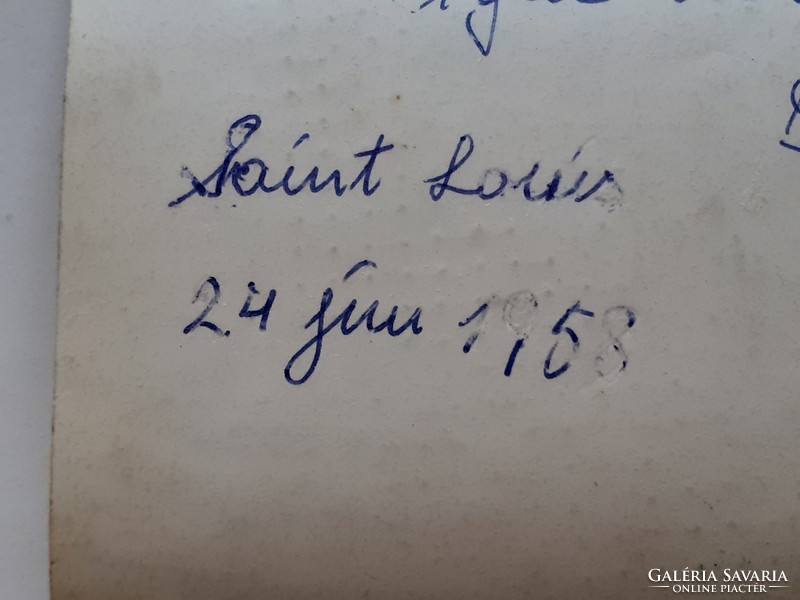 Saint Louis
24 jun 1958
GALÉRIA SAVARIA
ONLINE PIACTÉR